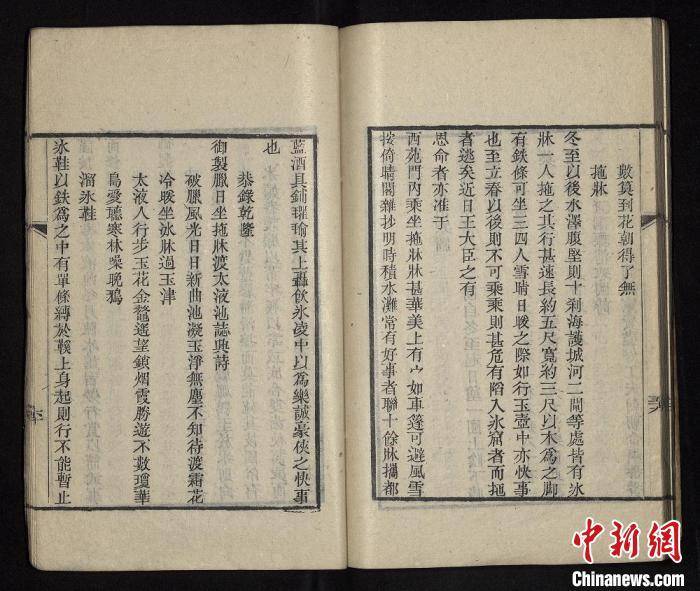 數算到花朝得了無
拖牀
冬至以後水澤腹堅則十刹海護城河二閘等處皆有氷
牀一人拖之其行甚速長約五尺寬約三尺以木爲之脚
有鉄條可坐三四人雪晴日暖之際如行玉壺中亦快事
也至立春以後則不可乘乘則甚危有陷入氷窟者而拖
者逃矣近日王大臣之有
恩命者亦准于
西苑門內乘坐拖牀牀甚華美上有如車篷可避風雪
按倚晴閣雜抄明時積水灘常有好事者聯十餘牀攜都
藍酒具鋪氍毹其上轟飲氷凌中以爲樂誠豪俠之快事
也
恭錄乾隆
御製臘日坐拖牀渡太液池誌興詩
破臘風光日日新曲池凝玉淨無塵不知待渡霜花
冷暖坐氷牀過玉津
太液人行步玉花金鰲遥望鎖烟霞勝遊不數瓊華
島愛聽寒林噪晚鴉
溜氷鞋
氷鞋以鉄爲之中有單條縛於鞵上身起則行不能暫止
中新网
Chinanews.com